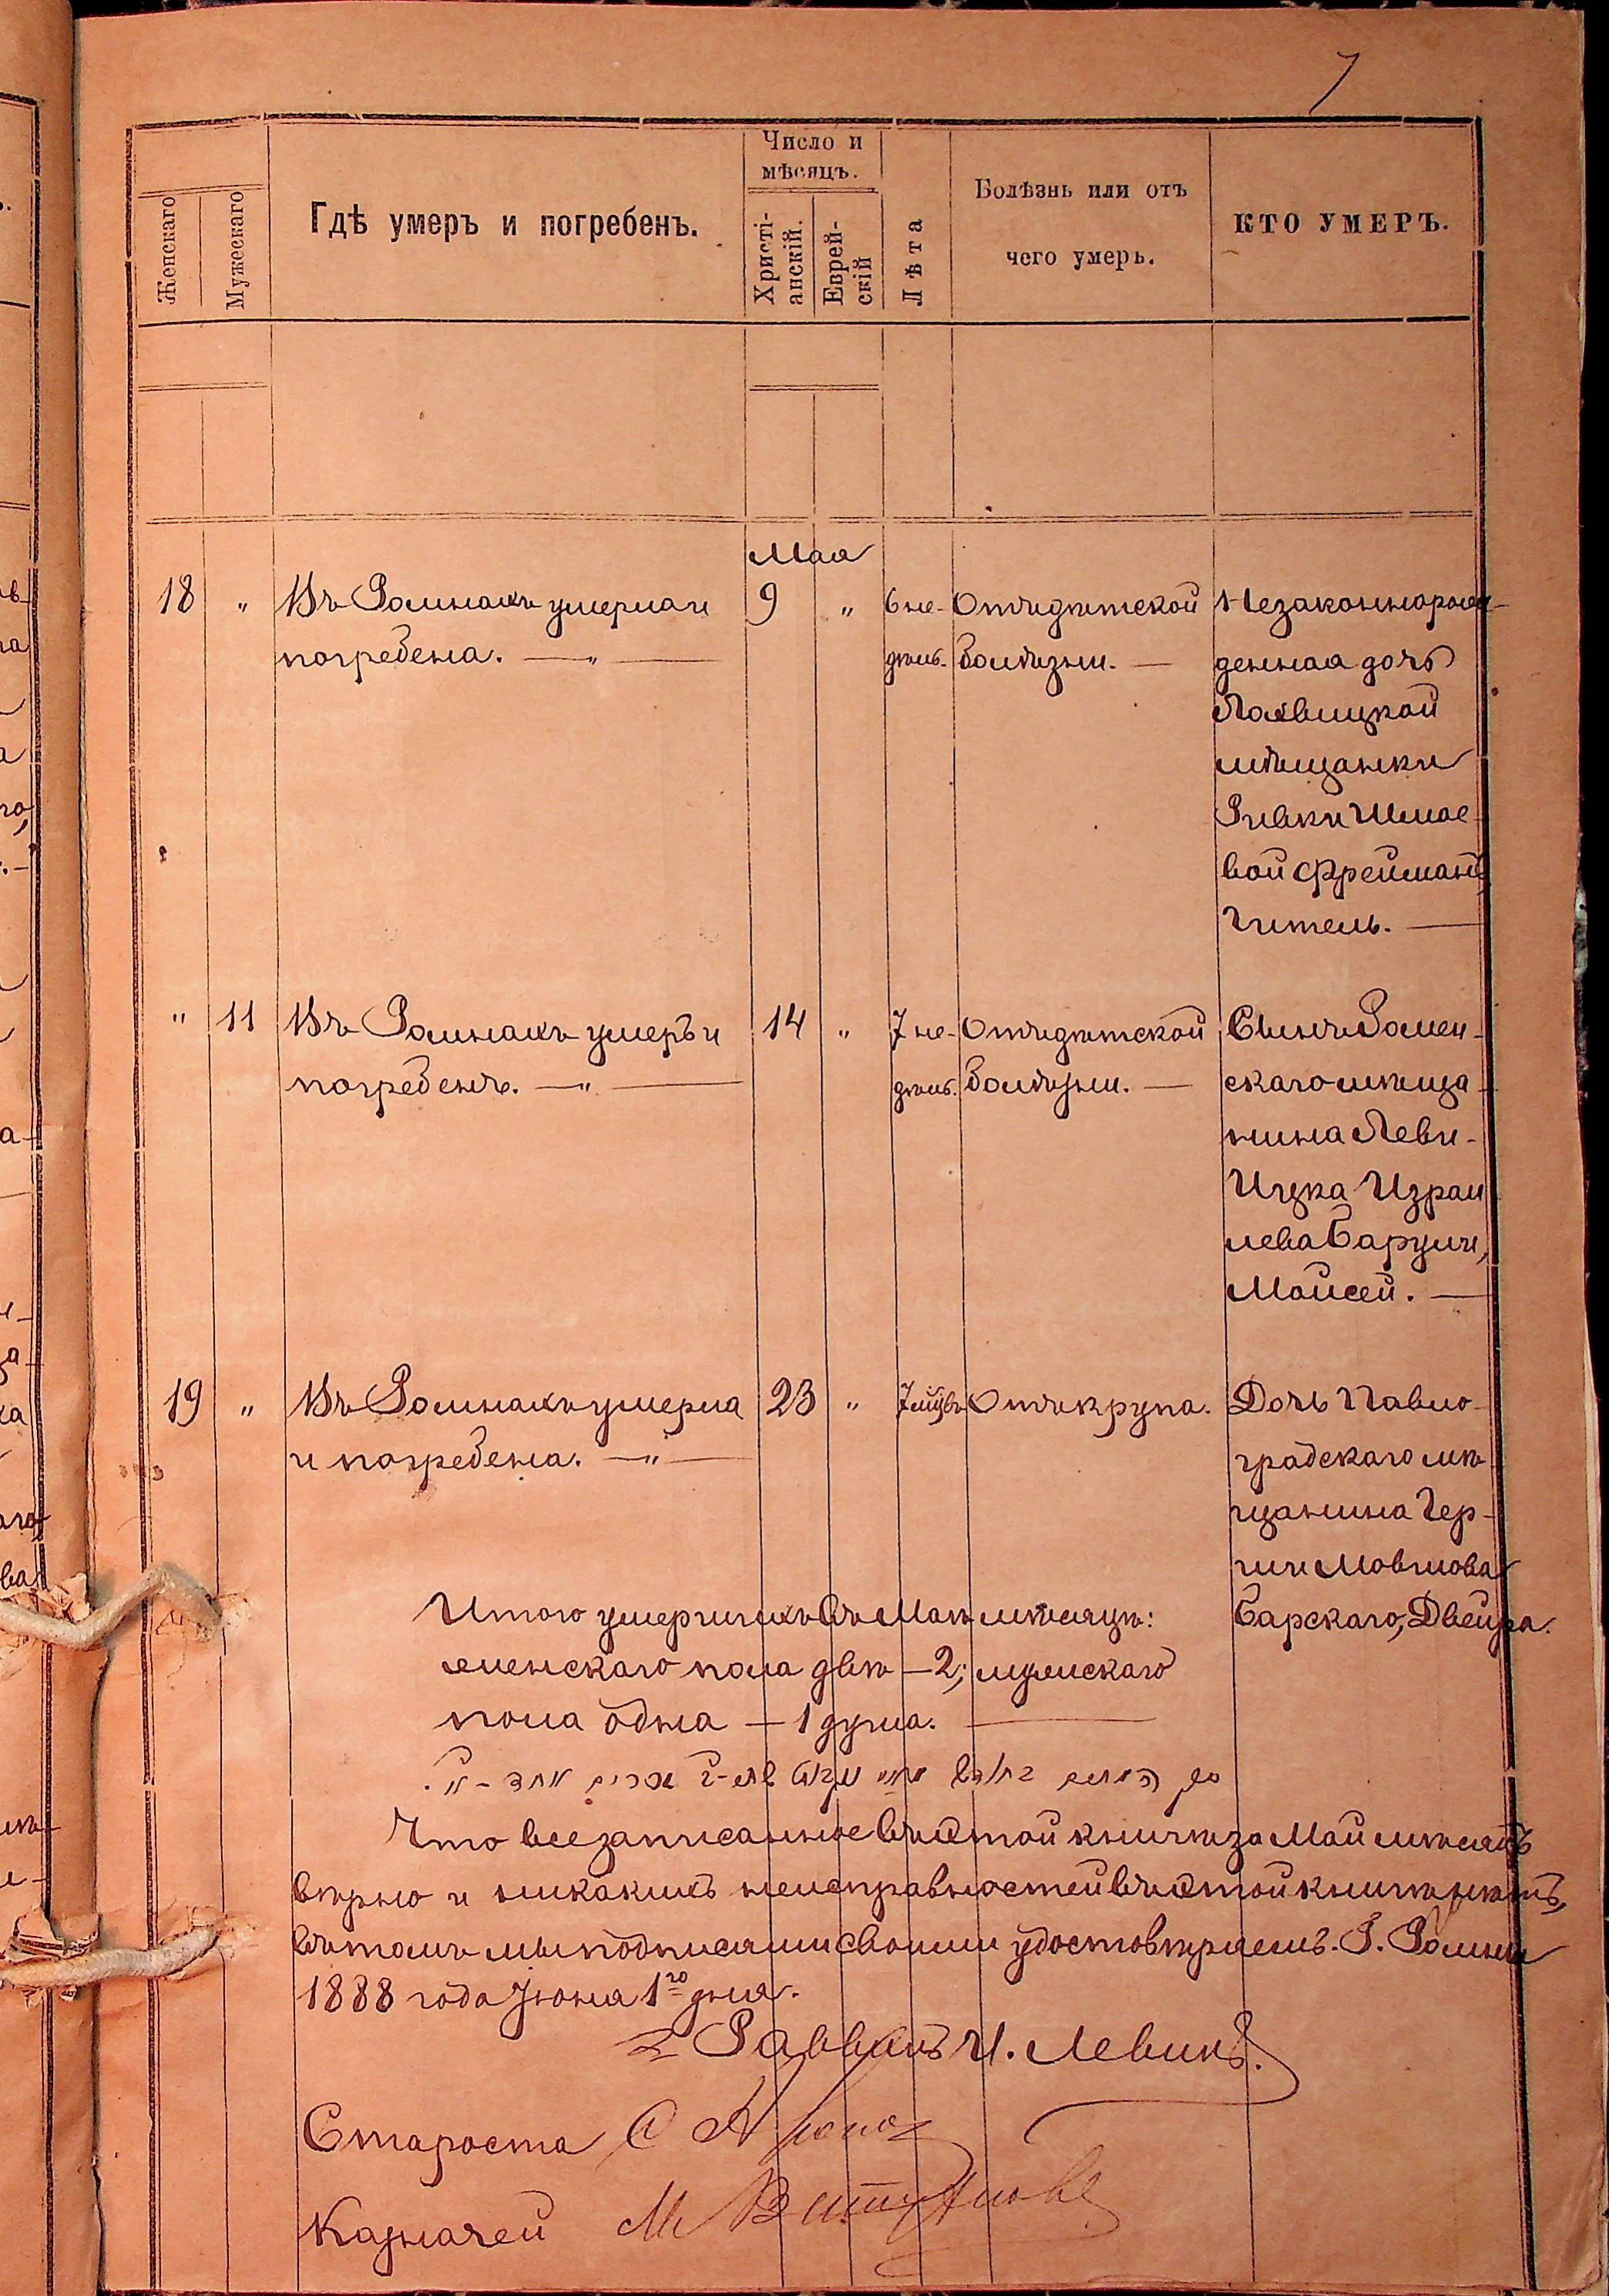 7
Число и
мѣсяцъ.
Женскаго
Мужескаго
Гдѣ умеръ и погребенъ.
Христі-
анскій.
Еврей-
скій
Лѣта
Болѣзнь или отъ
чего умеръ.
КТО УМЕРЪ.
Мая
18 " Въ Ромнахъ умерла и 9 " 6 не- Отъ дѣтской Незаконнорож-
погребена. — " — дѣль. болѣзни. — денная дочь
Лохвицкой
мѣщанки
Ривки Шмае-
вой Фрейманъ,
Гитель. —
" 11 Въ Ромнахъ умеръ и 14 " 7 не- Отъ дѣтской Сынъ Ромен-
погребенъ. — " — дѣль. болѣзни. — скаго мѣща-
нина Леви-
Ицка Израи
лева
Мойсей. —
19 " Въ Ромнахъ умерла 23 " Отъ крупа. Дочь Павло-
и погребена. — " — градскаго мѣ
щанина Гер-
ши Мовшова
Барскаго, Двейра.
Итого умершихъ въ Маѣ мѣсяцѣ:
женскаго пола двѣ — 2; мужескаго
пола одна — 1 душа. —
Что все записанное въ этой книгѣ за Май мѣсяцъ
вѣрно и никакихъ неисправностей въ этой книгѣ нѣтъ,
въ томъ мы подписями своими удостовѣряемъ. Г. Ромны
1888 года Іюня 1го дня.
Раввинъ И. Левинъ.
Староста С
Казначей М